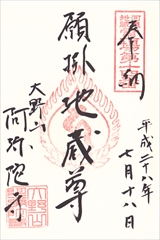 奉納
平成二十八年
七月十八日
願掛地蔵尊
大野山
阿弥陀寺